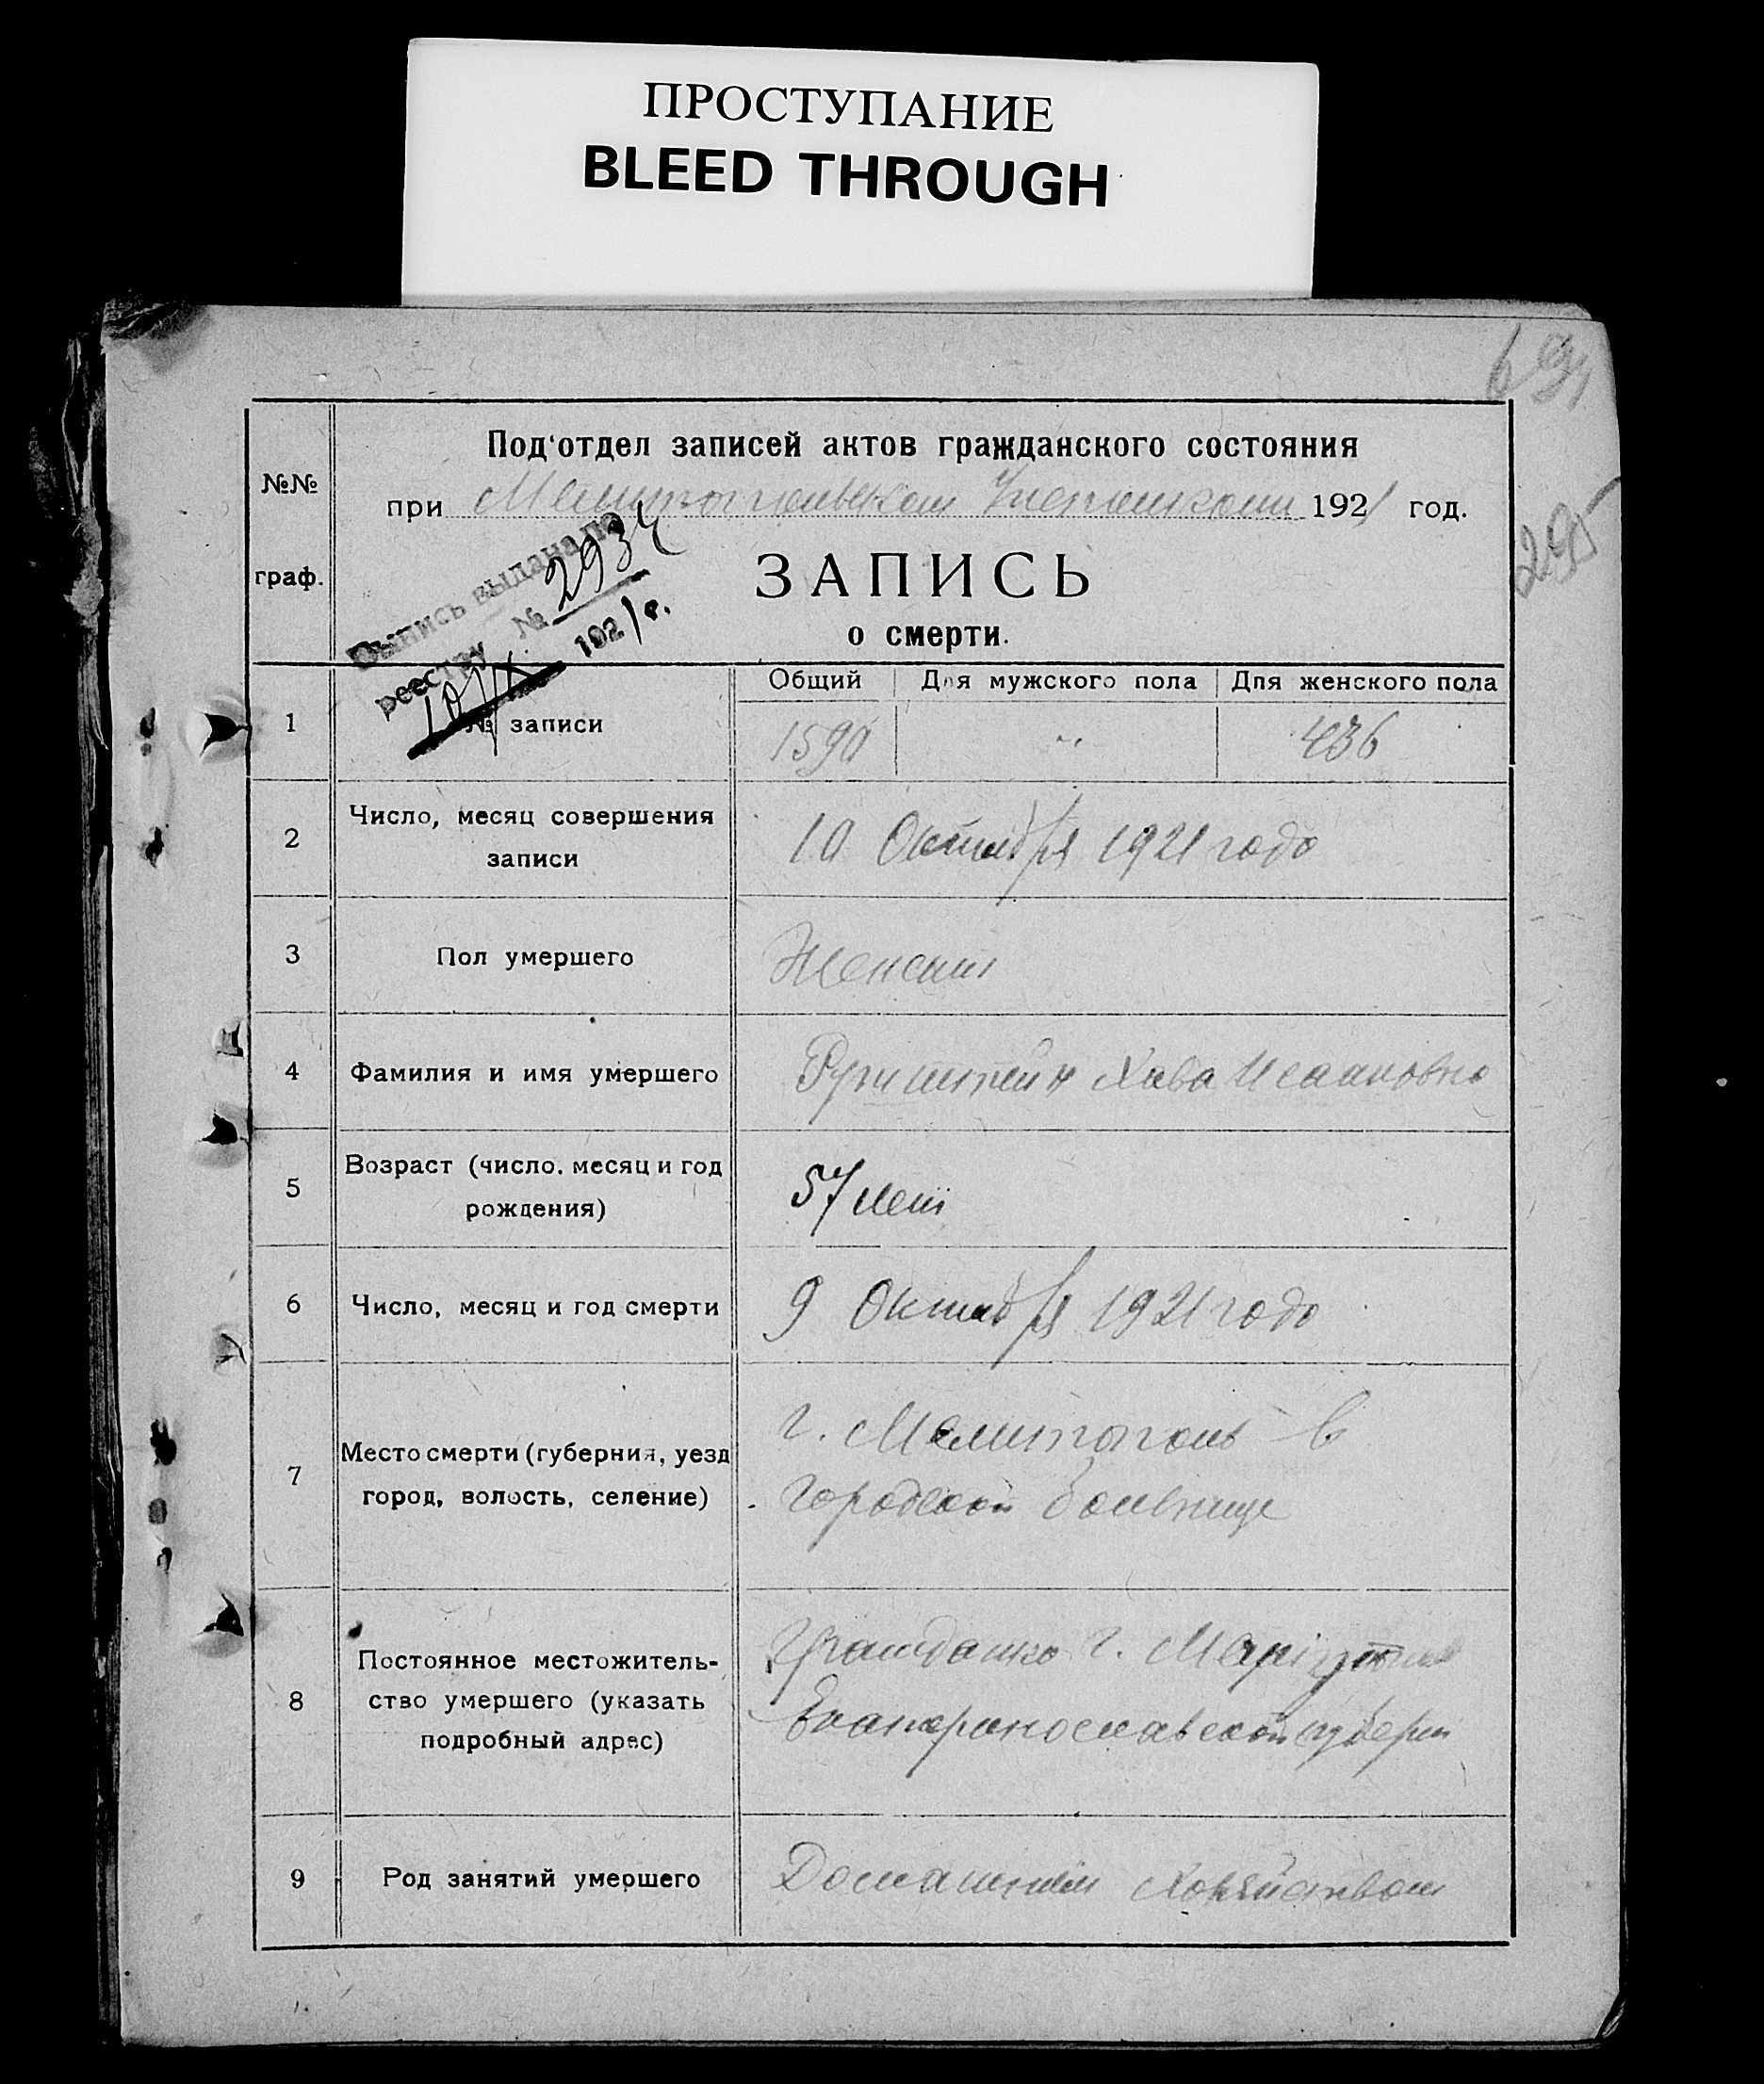 ПРОСТУПАНИЕ
BLEED THROUGH
69
295
№№
граф.
Под'отдел записей актов гражданского состояния
при Мелитопольском 1921 год.
Выпись выдана по
реестру № 2934
10/X 1921 г.
ЗАПИСЬ
о смерти.
1
№ записи
Общий Для мужского пола Для женского пола
1590 " 436
2
Число, месяц совершения
записи
10 Октября 1921 года
3
Пол умершего
Женский
4
Фамилия и имя умершего
Хава Исааковна
5
Возраст (число, месяц и год
рождения)
57 лет
6
Число, месяц и год смерти
9 Октября 1921 года
7
Место смерти (губерния, уезд
город, волость, селение)
г. Мелитополь в
городской больнице
8
Постоянное местожитель-
ство умершего (указать
подробный адрес)
Гражданка г. Маріуполя
Екатеринославской губерн
9
Род занятий умершего
Домашнем хозяйством